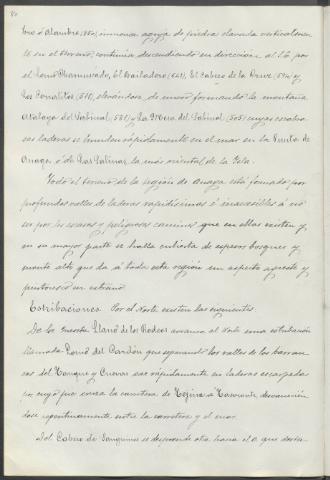 80
bro ó Alambre (864), inmensa aguja de piedra clavada verticalmen-
te en el terreno, continúa descendiendo en dirección al S.E. por
el Lomo Chamuscado, El Bailadero (647), El Cabezo de la Cruz (594) y
Los Corralitos (578), elevándose de nuevo formando la montaña
Atalaya del Sabinal, (581) y La Mesa del Sabinal (505) cuyas escabro-
sas laderas se hunden rápidamente en el mar en la Punta de
Anaga, ó de Las Palmas, la más oriental de la Isla.
Todo el terreno de la región de Anaga está formado por
profundos valles de laderas rapidísimas é inaccesibles á no
ser por los escasos y peligrosos caminos que en ellas existen y,
en su mayor parte se halla cubierta de espesos bosques y
monte alto que da á toda esta región un aspecto agreste y
pintoresco en extremo
Estribaciones Por el Norte existen las siguientes.
De la Llano de los Rodeos arranca al Norte una estribación
llamada Lomo del Cardón que separando los valles de los barran-
cos del Tanque y Cuevas cae rápidamente en laderas escarpadas
por cuyo pie cruza la carretera de Tejina á Tacoronte desvanecién-
dose repentinamente entre la carretera y el mar.
Del Cabezo de se desprende otra hacia el O. que